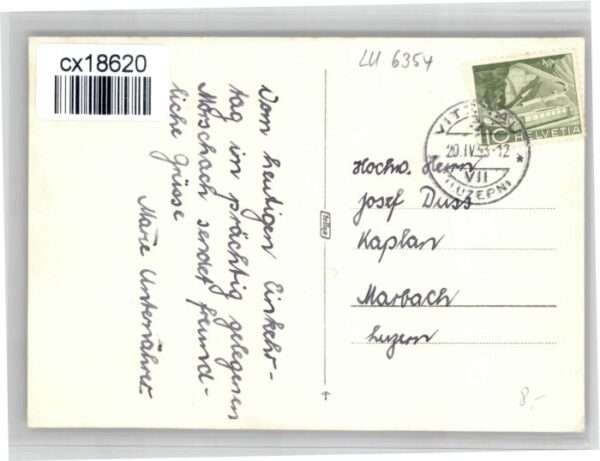 cx18620
LU 6354
Vom heutigen Einkehr-
tag im prächtig gelegenen
Morschach sendet freund-
liche Grüsse
Marie Unternährer.
10 HELVETIA
VITZNAU
20.IV.53-12
VII
(LUZERN)
Hochw. Herrn
Josef Duss
Kaplan
Marbach
Luzern
8.-